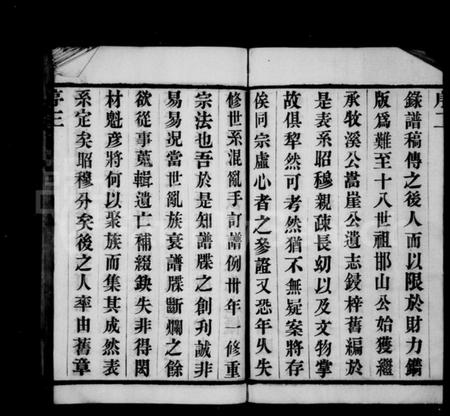 序二
錄譜稿傳之後人而以限於財力鐫
版爲難至十八世祖邯山公始獲繼
承牧溪公嵩崖公遺志鋟梓舊編於
是表系昭穆親疎長幼以及文物掌
故俱犂然可考然猶不無疑案將存
俟同宗虛心者之參證又恐年久失
修世系混亂手訂譜例卅年一修重
宗法也吾於是知譜牒之創刋誠非
易易況當世亂族衰譜牒斷爛之餘
欲從事蒐輯遺亡補綴鈌失非得閎
材魁彥將何以聚族而集其成然表
系定矣昭穆分矣後之人率由舊章
序三